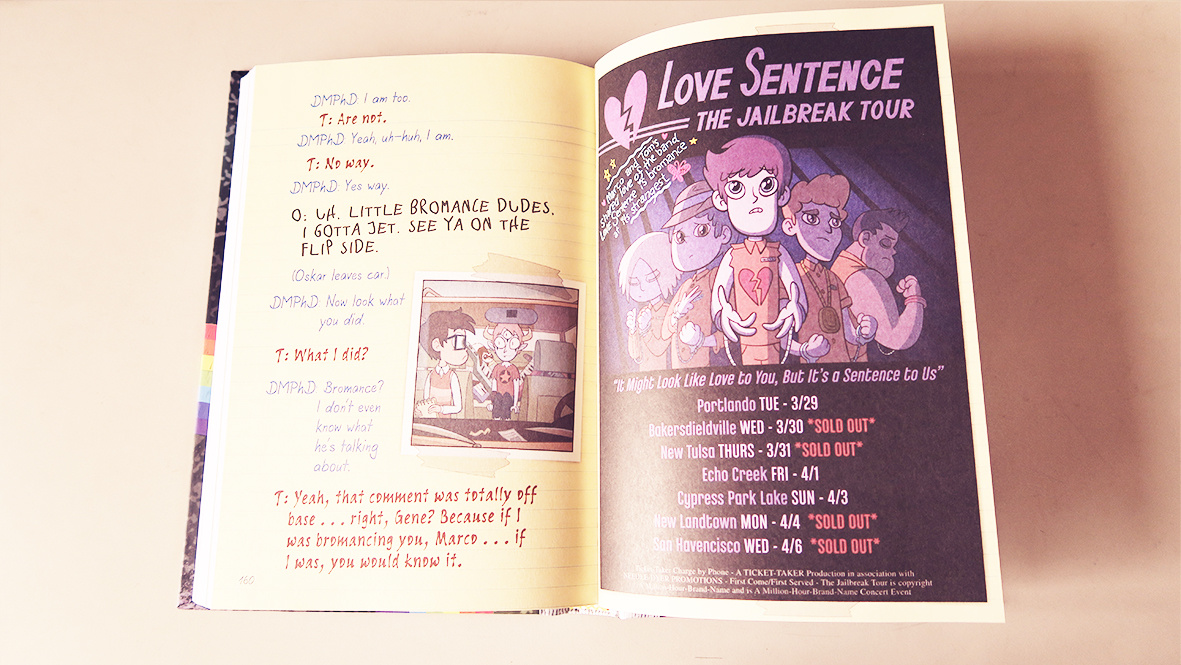 DMPhD: I am too.
T: Are not.
DMPhD: Yeah, uh-huh, I am.
T: No way.
DMPhD: Yes way.
O: UH. LITTLE BROMANCE DUDES.
I GOTTA JET. SEE YA ON THE
FLIP SIDE.
(Oskar leaves car.)
DMPhD: Now look what
you did.
T: What I did?
DMPhD: Bromance?
I don't even
know what
he's talking
about.
T: Yeah, that comment was totally off
base . . . right, Gene? Because if I
was bromancing you, Marco . . . if
I was, you would know it.
160
LOVE SENTENCE
THE JAILBREAK TOUR
Marco and Tom's
shared love of the band
Love Sentence is bromance
at its strangest
"It Might Look Like Love to You, But It's a Sentence to Us"
Portlando TUE - 3/29
Bakersdieldville WED - 3/30 *SOLD OUT*
New Tulsa THURS - 3/31 *SOLD OUT*
Echo Creek FRI - 4/1
Cypress Park Lake SUN - 4/3
New Landtown MON - 4/4 *SOLD OUT*
San Havencisco WED - 4/6 *SOLD OUT*
Charge by Phone - A TICKET-TAKER Production in association with
PROMOTIONS - First Come/First Served - The Jailbreak Tour is copyright
Million-Hour-Brand-Name and is A Million-Hour-Brand-Name Concert Event